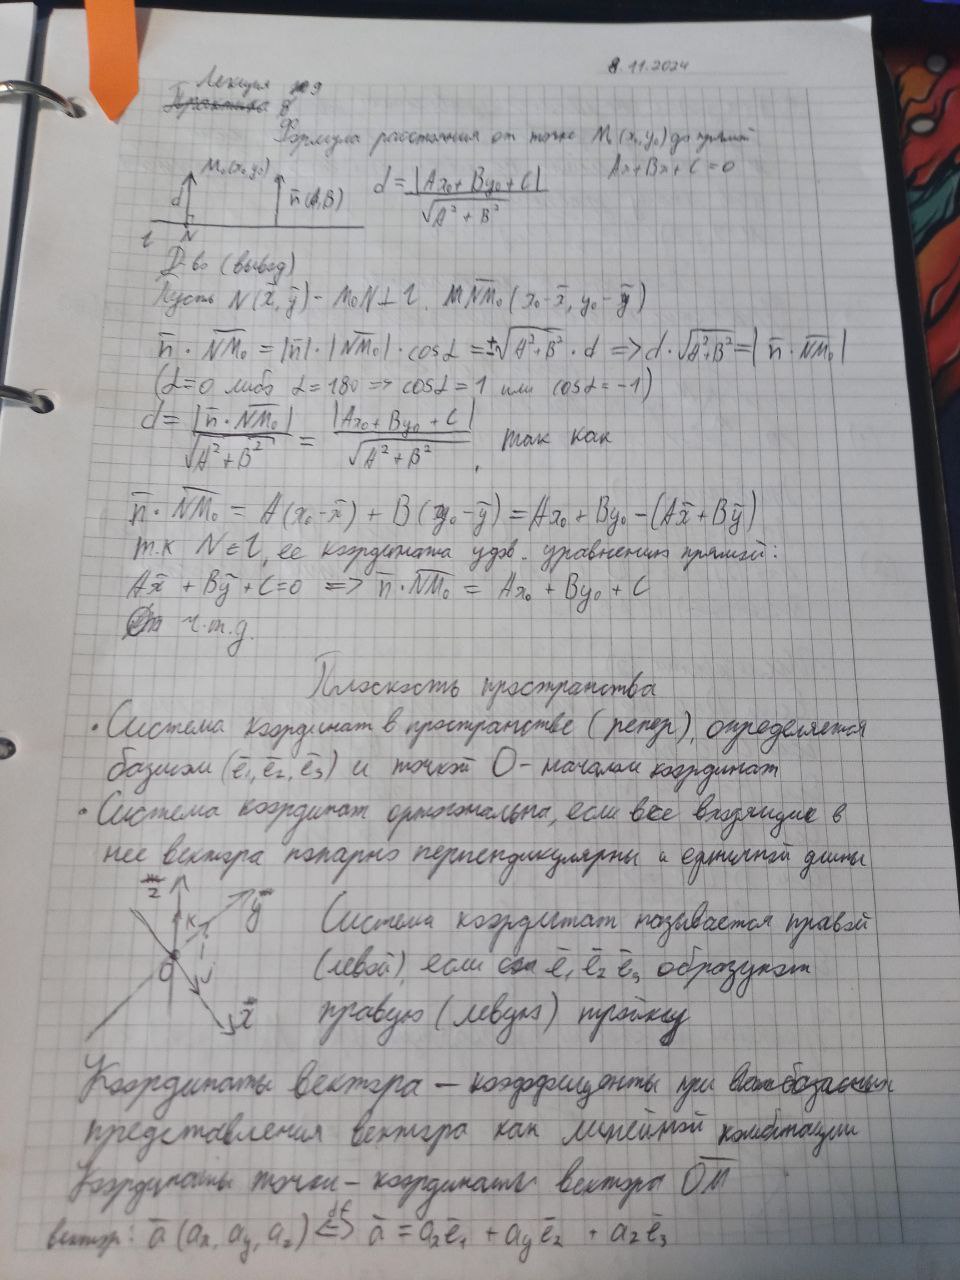 8.11.2024
Лекция №9
Практика 8
Формула расстояния от точке M₀(x₀, y₀) до прямой
Ax+Bx+C=0
M₀(x₀ y₀)
d
n̅(A,B)
d = |Ax₀+By₀+C| / √(A²+B²)
l N
Д-во (вывод)
Пусть N(x̅, y̅) - M₀N⊥l. N̅M̅₀(x₀-x̅, y₀-y̅)
n̅ · N̅M̅₀ = |n̅|·|N̅M̅₀|·cosα = ±√(A²+B²)·d => d·√(A²+B²) = |n̅·N̅M̅₀|
(α=0 либо α=180 => cosα=1 или cosα=-1)
d = |n̅·N̅M̅₀| / √(A²+B²) = |Ax₀+By₀+C| / √(A²+B²), так как
n̅·N̅M̅₀ = A(x₀-x̅) + B(y₀-y̅) = Ax₀ + By₀ - (Ax̅+By̅)
т.к N∈l, ее координата удов. уравнению прямой:
Ax̅ + By̅ + C=0 => n̅·N̅M̅₀ = Ax₀ + By₀ + C
ч.т.д.
Плоскость пространства
• Система координат в пространстве (репер), определяется
базисом (e̅₁, e̅₂, e̅₃) и точкой O - началом координат
• Система координат ортогональна, если все входящие в
нее вектора попарно перпендикулярны и единичной длины
z̅
y̅
K
O
x̅
Система координат называется правой
(левой), если e̅₁ e̅₂ e̅₃ образуют
правую (левую) тройку
Координаты вектора - коэффициенты при базисных
представления вектора как линейной комбинации
Координаты точки - координаты вектора O̅M̅
вектор: a̅ (aₓ, aᵧ, a_z) <=>^df a̅ = aₓe̅₁ + aᵧe̅₂ + a_ze̅₃